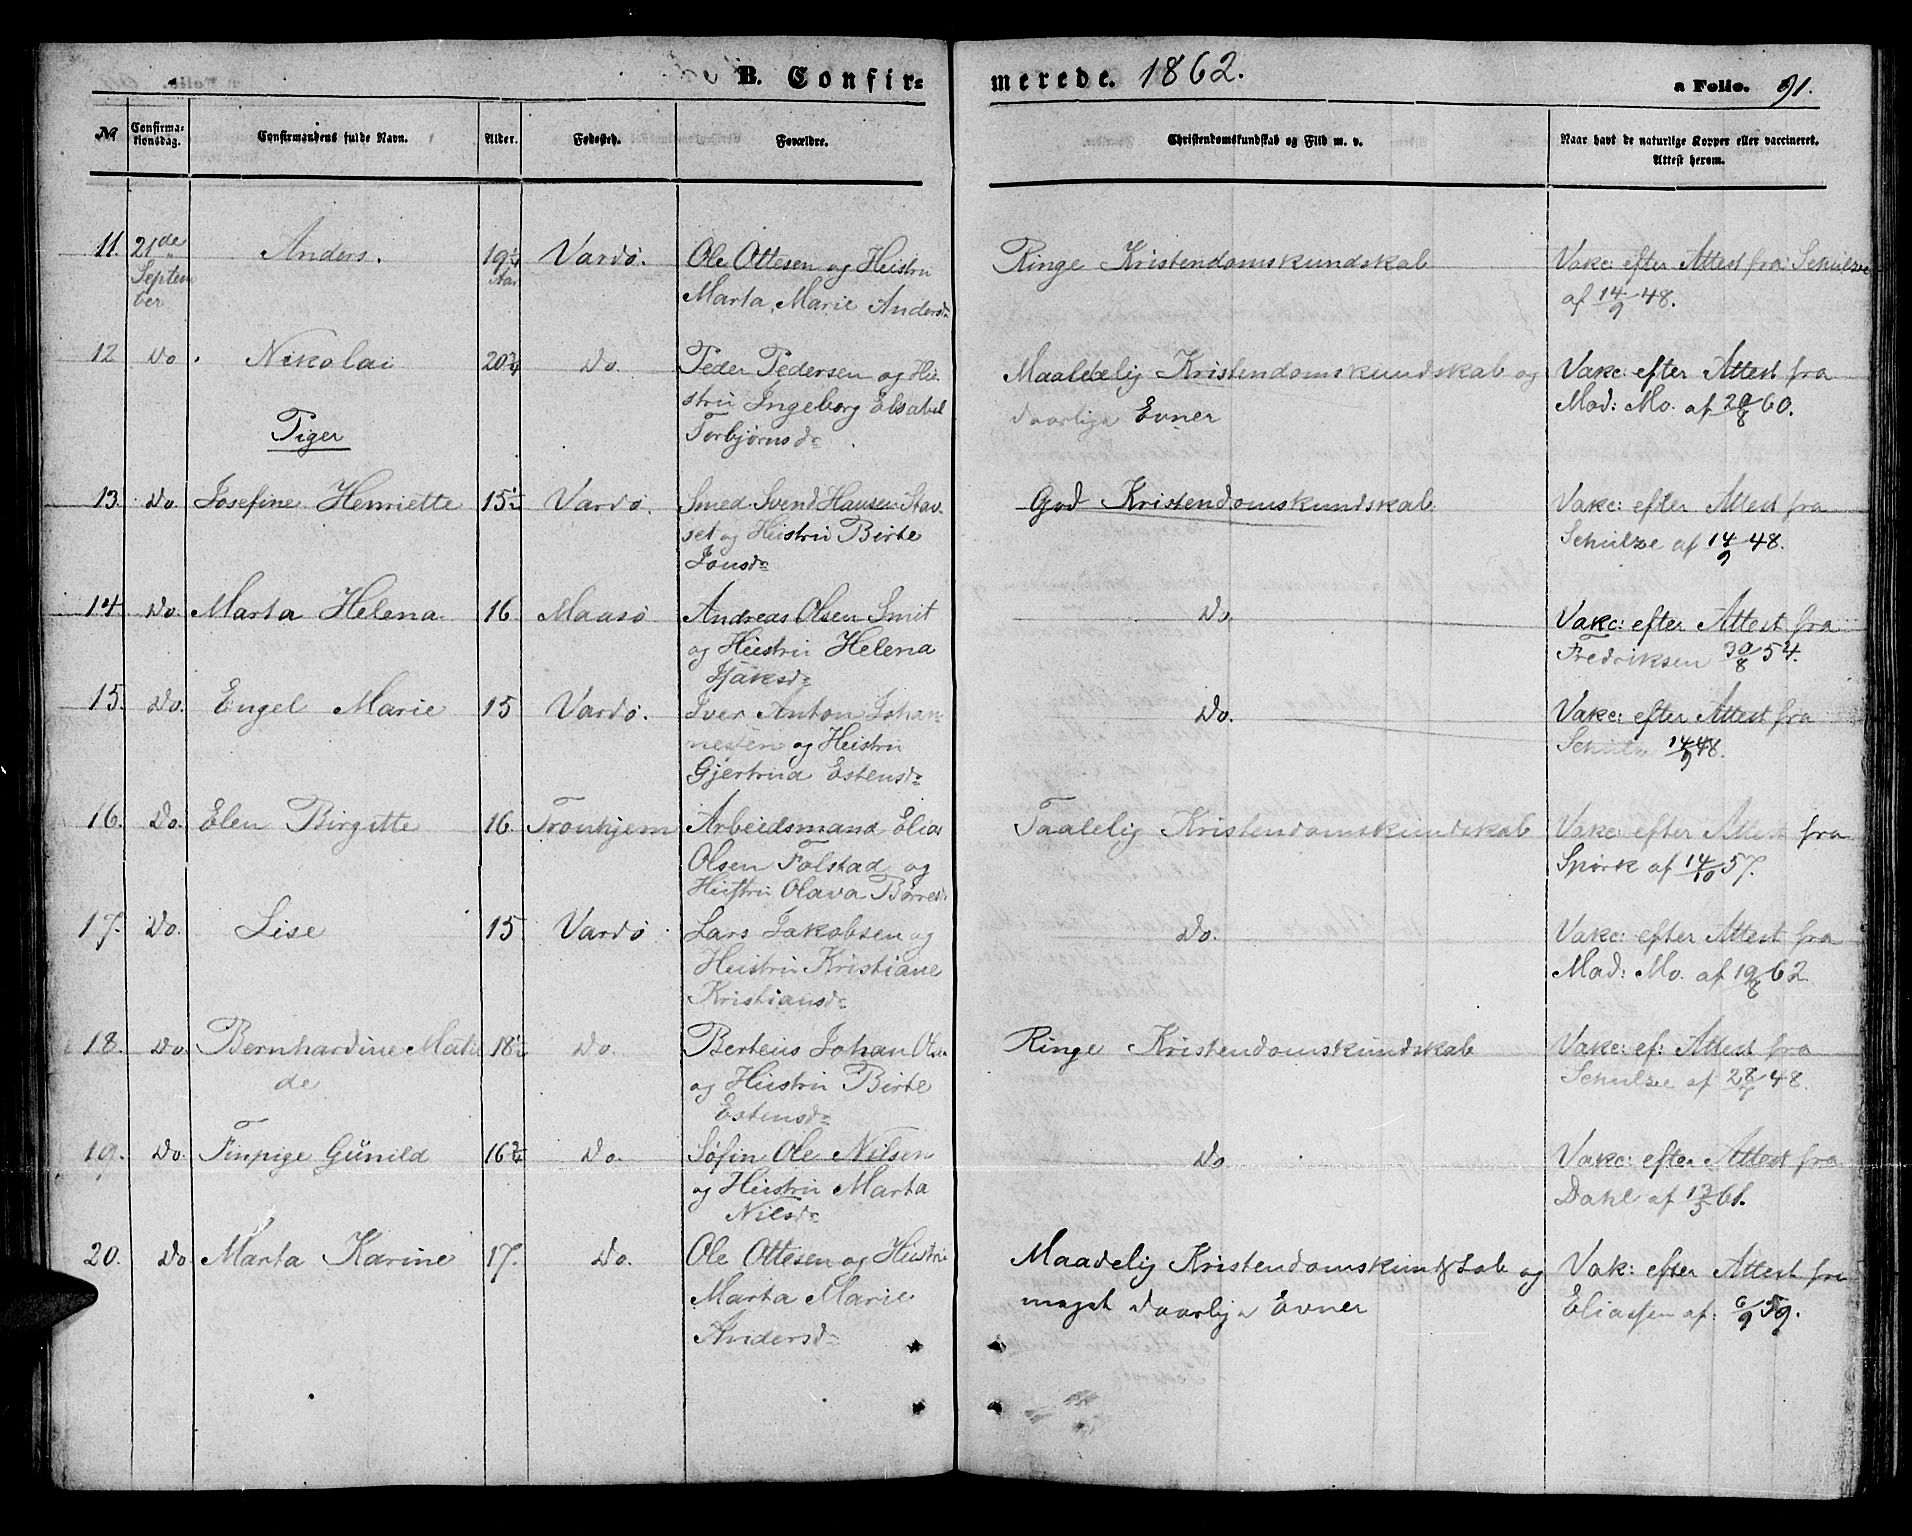 B. Confirmerede. 1862. a Folio. 91.
No Confirmationsdag. Confirmandens fulde Navn. Alder. Fødested. Forældre. Christendomskundskab og Flid m. v. Naar havt de naturlige Kopper eller vaccineret. Attest herom.
11. 21de September Anders. 19 1/4 Aar Vardø. Ole Ottesen og Heistru Ringe Kristendomskundskab Vakc: efter Attest fra Schulze
Marta Marie Andersd. af 14/9 48.
12 Do. Nikolai 20 3/4 Do. Peder Pedersen og Hei- Maadelig Kristendomskundskab og Vakc: efter Attest fra
stru Ingeborg Elsabel daarlige Evner Mad: Mo. af 20/8 60.
Torbjørnsd.
Piger
13. Do Josefine Henriette 15 1/2 Vardø. Smed Svend Hansen Stav- God Kristendomskundskab Vakc: efter Attest fra
set og Heistru Birte Schulze af 14/9 48.
Jonsd.
14 Do. Marta Helena 16 Maasø Andreas Olsen Smit Do. Vakc: efter Attest fra
og Heistru Helena Fredriksen 30/8 54.
Isaksd.
15. Do. Engel Marie 15 Vardø. Iver Anton Johan- Do. Vakc: efter Attest fra
nesen og Heistru Schulze 14/9 48.
Gjertrud Estensd.
16. Do. Elen Birgitte 16. Tronhjem Arbeidsmand Elias Taalelig Kristendomskundskab Vakc: efter Attest fra
Olsen Folstad og Spørk af 14/10 57.
Heistru Olava Børresd.
17. Do. Lise 15 Vardø Lars Jakobsen og Do. Vakc: efter Attest fra
Heistru Kristiane Mad: Mo. af 19/8 62.
Kristiansd.
18. Do Bernhardine Matil 18 1/2 Do. Berteus Johan Olsen Ringe Kristendomskundskab Vakc: ef: Attest fra
de og Heistru Birte Schulze af 28/7 48.
Estensd.
19. Do. Finpige Gunild 16 3/4 Do. Søfin Ole Nilsen Do Vakc: efter Attest fra
og Heistru Marta Dahl af 13/5 61.
Nilsd.
20. Do Marta Karine 17. Do. Ole Ottesen og Heistru Maadelig Kristendomskundskab og Vak: efter Attest fra
Marta Marie meget daarlige Evner Eliassen af 6/9 59.
Andersd.